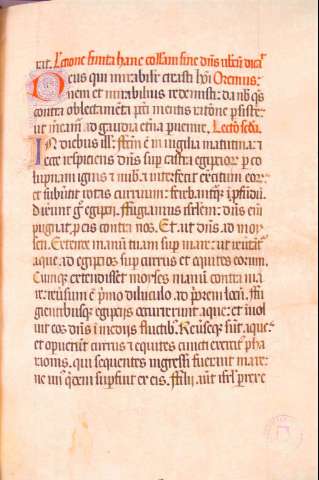 rit. Lectione finita hanc collam sine dñs uobcũ dicat
Deus qui mirabilir creasti hoĩ Oremus:
nem et mirabilius redemisti: da nb̃ qs
contra oblectamẽta pcti mentis ratõne ꝑsistere:
ut mẽam ad gaudia etña peruenire. Lectio scđa
In diebus ill: fcm ẽ in uigilia matutina: 7
ecce respiciens dñs sup castra egiptior ꝑ co
lupnam ignis 7 nub: 7 interfecit exercitum eor:
et subutit rotas curruum: ferebanturqꝫ ĩ ꝓfũdũ.
Dixerunt g egiptii. ffugiamus isrlem: dñs eĩm
pugnat ꝑ eis contra nos. Et ait dñs ad moy
sen. Extende manũ tuam sup mare: ut reuertant
aque ad egiptios sup currus et equites eorum.
Cumqꝫ extendisset moyses manũ contra ma
re: reusum ẽ pmo diluculo ad priorem locũ. ffu
gientibusqꝫ egiptiis occurrerunt aque: et inuol
uit eos dñs ĩ mediis fluctibꝫ. Reuseqꝫ sũt aque:
et operuerũt currus 7 equites cuncti exercitꝰ pha
raonis. qui sequentes ingressi fuerunt mare:
ne unꝰ quidem supfuit ex eis. ffilii aũt isrl ꝑrexe